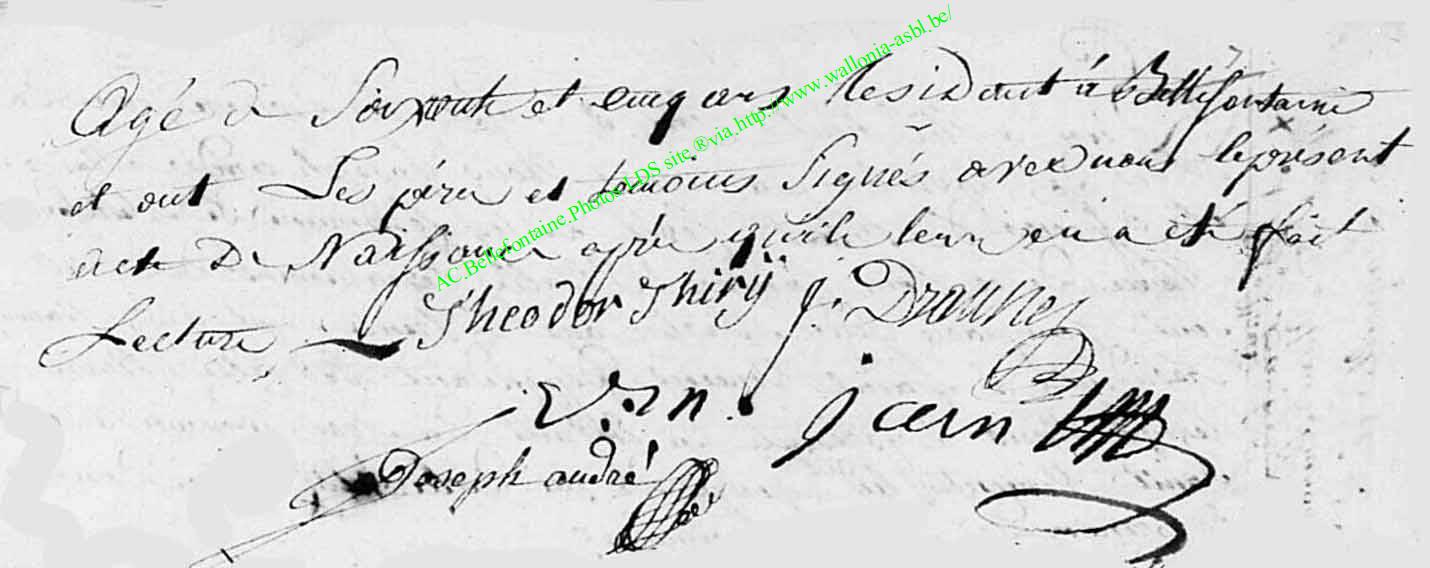 Agé de Soixante et cinq ans Residant à Bellefontaine
et ont Les père et temoins Signés avec nous le présent
acte De Naissance après qu'il leur en a eté fait
Lecture
Theodor Thirÿ J. Drounet
jean
Joseph andré
AC.Bellefontaine.Photos LDS site ®via.http://www.wallonia-asbl.be/